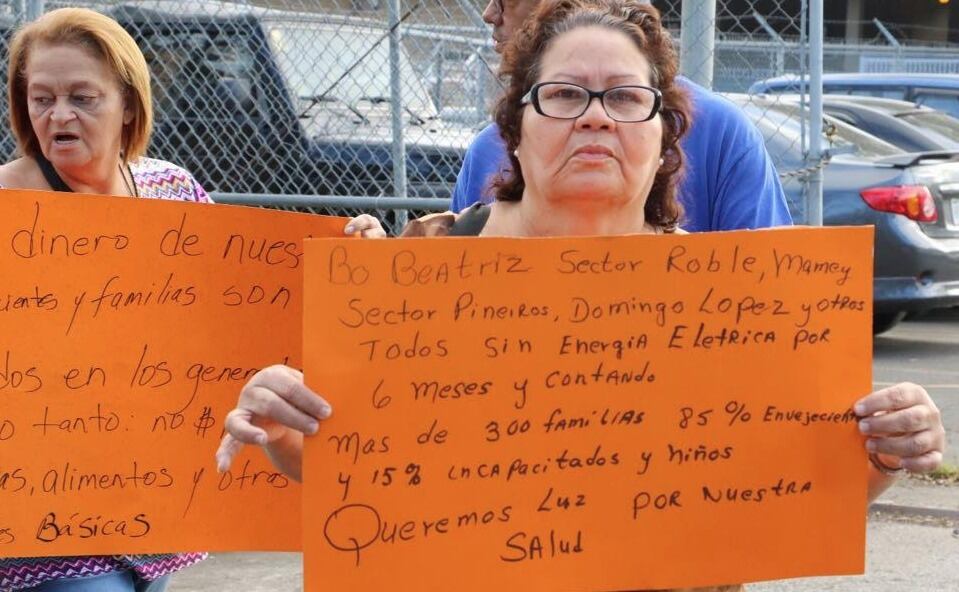 dinero de
y familias son
en los
tanto: no $
alimentos y otras
Básicas
Bo Beatriz Sector Roble, Mamey
Sector Pineiros, Domingo Lopez y otros
Todos sin Energia Eletrica por
6 meses y contando
mas de 300 familias 85% Envejecient
y 15% incapacitados y niños
Queremos Luz por nuestra
Salud